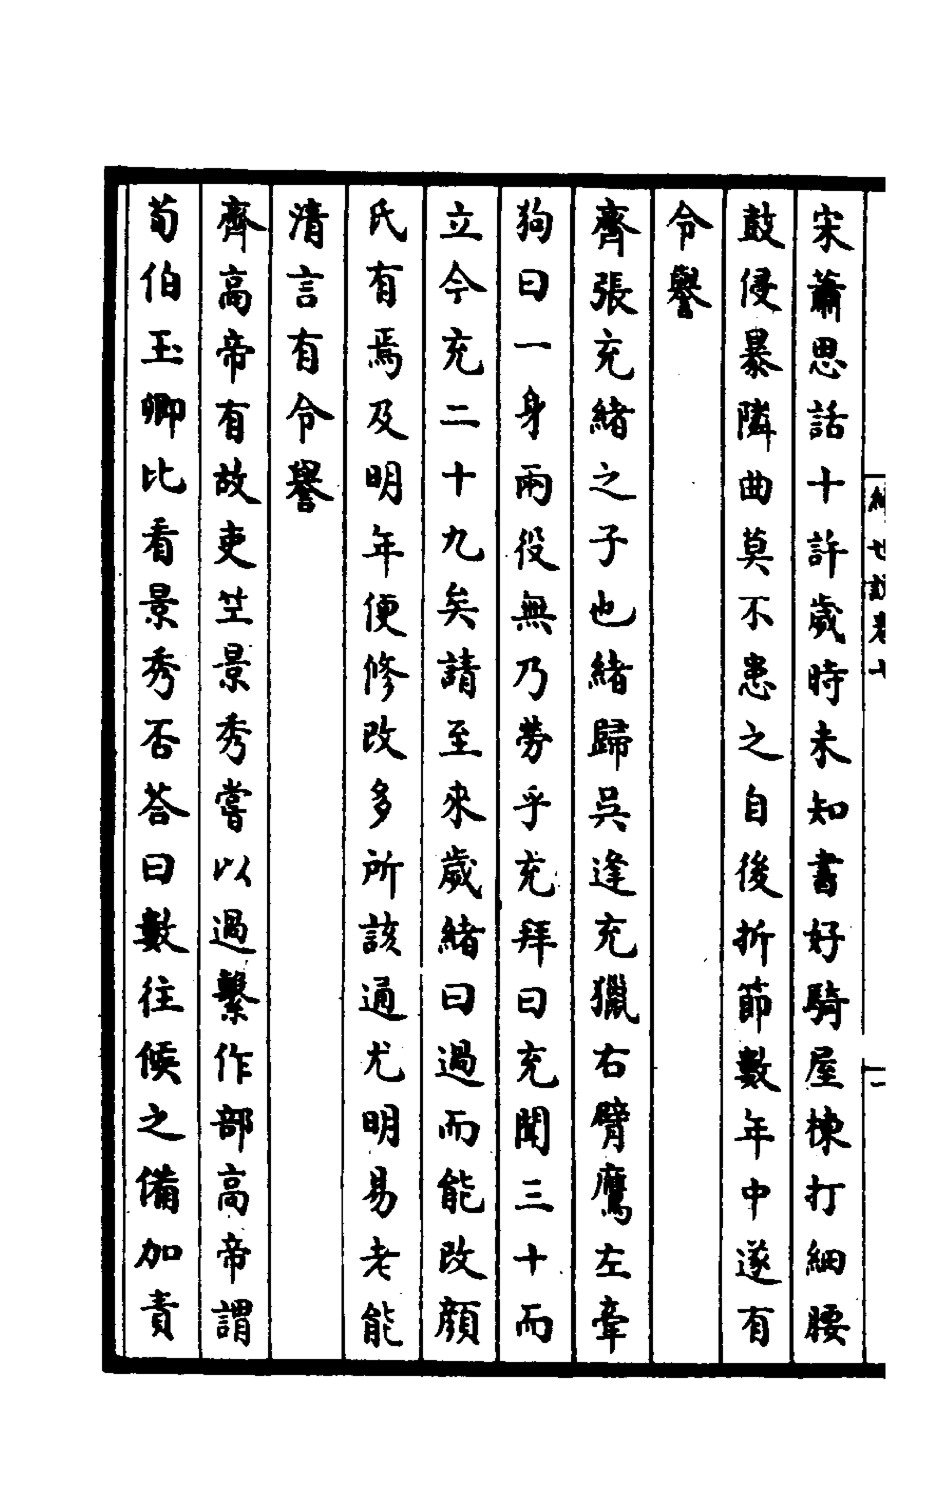 宋蕭思話十許歲時未知書好騎屋棟打細腰
鼓侵暴隣曲莫不患之自後折節數年中遂有
令譽
齊張充緒之子也緒歸吳逢充獵右臂鷹左牽
狗曰一身兩役無乃勞乎充拜曰充聞三十而
立今充二十九矣請至來歲緒曰過而能改顏
氏有焉及明年便修改多所該通尤明易老能
清言有令譽
齊高帝有故吏竺景秀嘗以過繫作部高帝謂
荀伯玉卿比看景秀否荅曰數往候之備加責